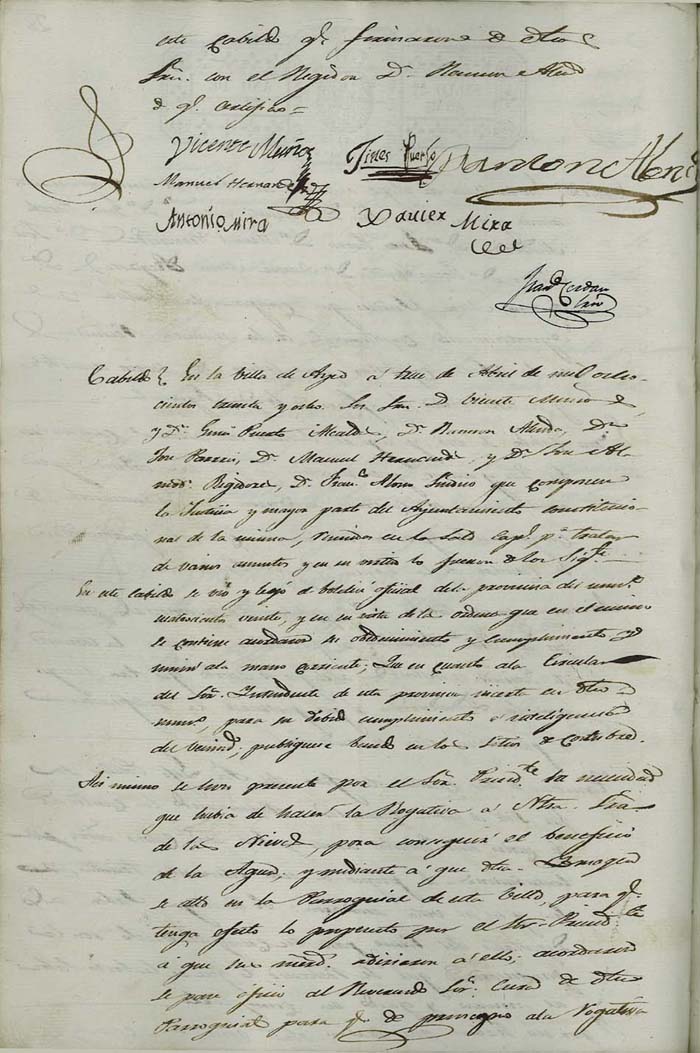 este Cabildo q.e firmaron dho
Sres. con el Regidor D. Ramon Alenda
de q.e certifico =
Vicente Muñoz Gines Puerto Ramon Alenda
Manuel Hernandez
Antonio Mira Xavier Mira
Fran.co Cerdan
Srio
Cabildo En la Villa de Aspe á trece de Abril de mil ocho-
cientos treinta y ocho. Los Sres. D. Vicente Muñoz
y D.n Gines Puerto Alcaldes, D.n Ramon Alenda, D.n
D.n Manuel Hernandez, y D.n Al-
Regidores, D. Fran.co Alonso Sindico que componen
la Justicia y mayor parte del Ayuntamiento constitucio-
nal de la misma, reunidos en la Sala Cap.r p.a tratar
de varios asuntos y en su vista lo fueron de los Sig.tes
En este Cabildo se vió y leyó el boletin oficial de la provincia del num.o
cuatrocientos veinte, y en su vista de la ordenes que en el mismo
se contiene acordaron su obedecimiento y cumplimiento
unir á la mano corriente; Que en cuanto á la Circular
del Sor. Intendente de esta provincia inserta en dho
num.o, para su debido cumplimiento é inteligencia
del vecind.o, publiquese bando en los Sitios de Costumbre.
Asi mismo se hizo presente por el Sor. Presid.te la necesidad
que habia de hacer la Rogativa á Ntra. Sra.
de las Nieves, para conseguir el beneficio
de la Agua; y mediante á que dha. Imagen
se alla en la Parroquial de esta Villa, para q.e
tenga efecto lo propuesto por el Sor. Presid.te
á que sus merd.s adirieron á ello; acordaron
se pase oficio al Reverendo Sor. Cura de dha
Parroquial para q.e de principio á la Rogativa